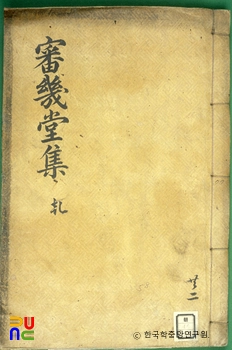 審幾堂集
乹
共二
ⓒ 한국학중앙연구원